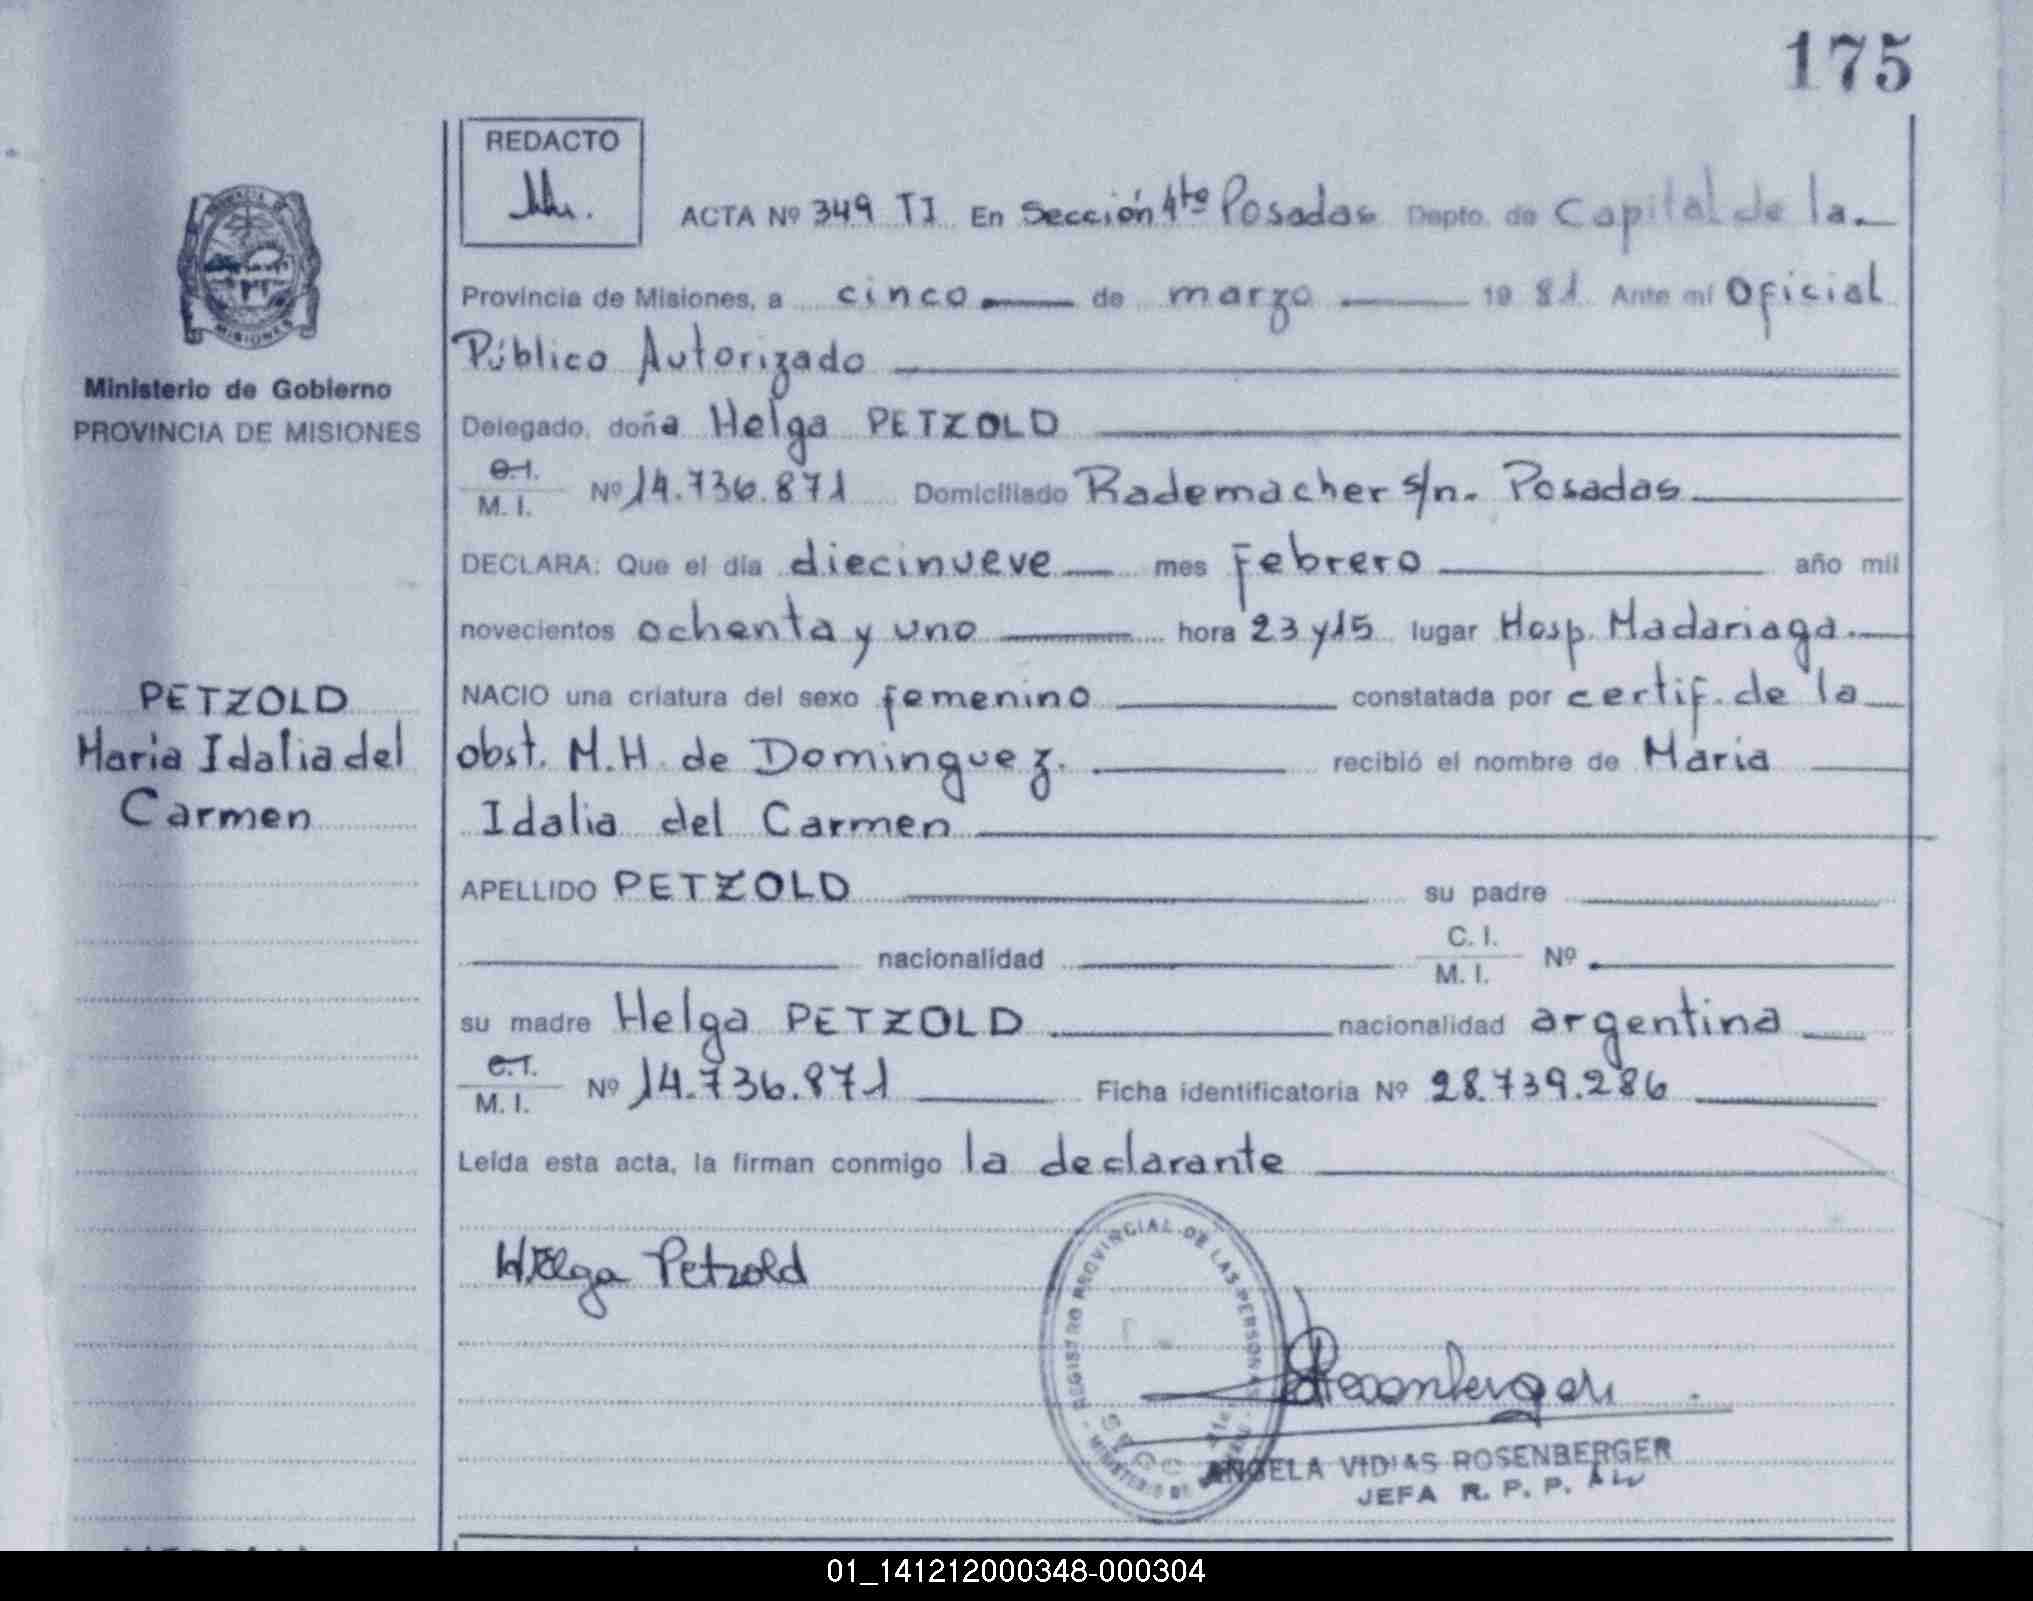 175
REDACTO
ACTA Nº 349 TI En Sección 4ta Posadas Depto. de Capital de la
Provincia de Misiones, a cinco de marzo 19 81 Ante mí Oficial
Público Autorizado
Ministerio de Gobierno
PROVINCIA DE MISIONES
Delegado, doña Helga PETZOLD
C.I.
M. I. Nº 14.736.871 Domiciliado Rademacher s/n. Posadas
DECLARA: Que el día diecinueve mes Febrero año mil
novecientos ochenta y uno hora 23 y 15 lugar Hosp. Madariaga.
PETZOLD
Maria Idalia del
Carmen
NACIO una criatura del sexo femenino constatada por certif. de la
obst. M.H. de Dominguez. recibió el nombre de Maria
Idalia del Carmen
APELLIDO PETZOLD su padre
nacionalidad C. I.
M. I. Nº
su madre Helga PETZOLD nacionalidad argentina
C.I.
M. I. Nº 14.736.871 Ficha identificatoria Nº 28.739.286
Leída esta acta, la firman conmigo la declarante
Helga Petzold
REGISTRO PROVINCIAL DE LAS PERSONAS
MINISTERIO DE
Rosenberger
ANGELA VIDIAS ROSENBERGER
JEFA R. P. P.
01_141212000348-000304